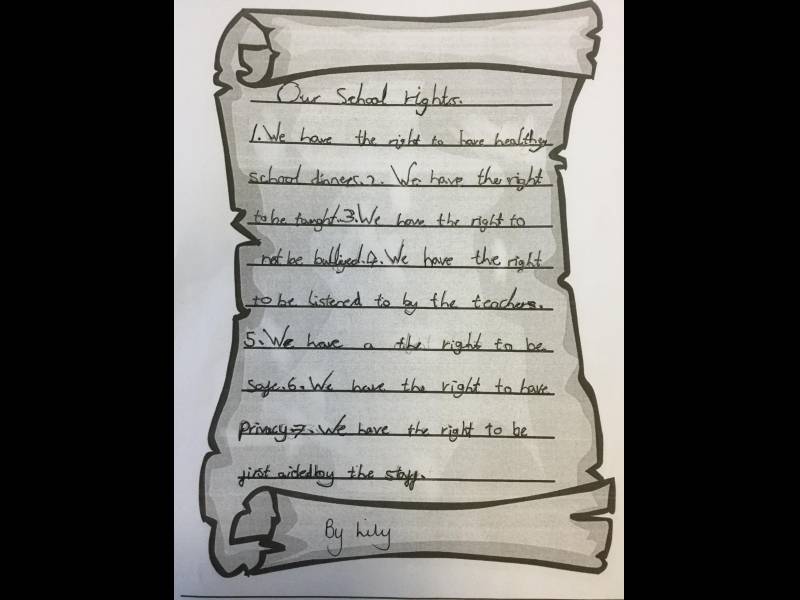 Our School rights.
1. We have the right to have healthey
school dinners. 2. We have the right
to be taught. 3. We have the right to
not be bulliyed. 4. We have the right
to be listened to by the teachers.
5. We have a the right to be
safe. 6. We have the right to have
privacy 7. We have the right to be
first aided by the staff.
By Lily